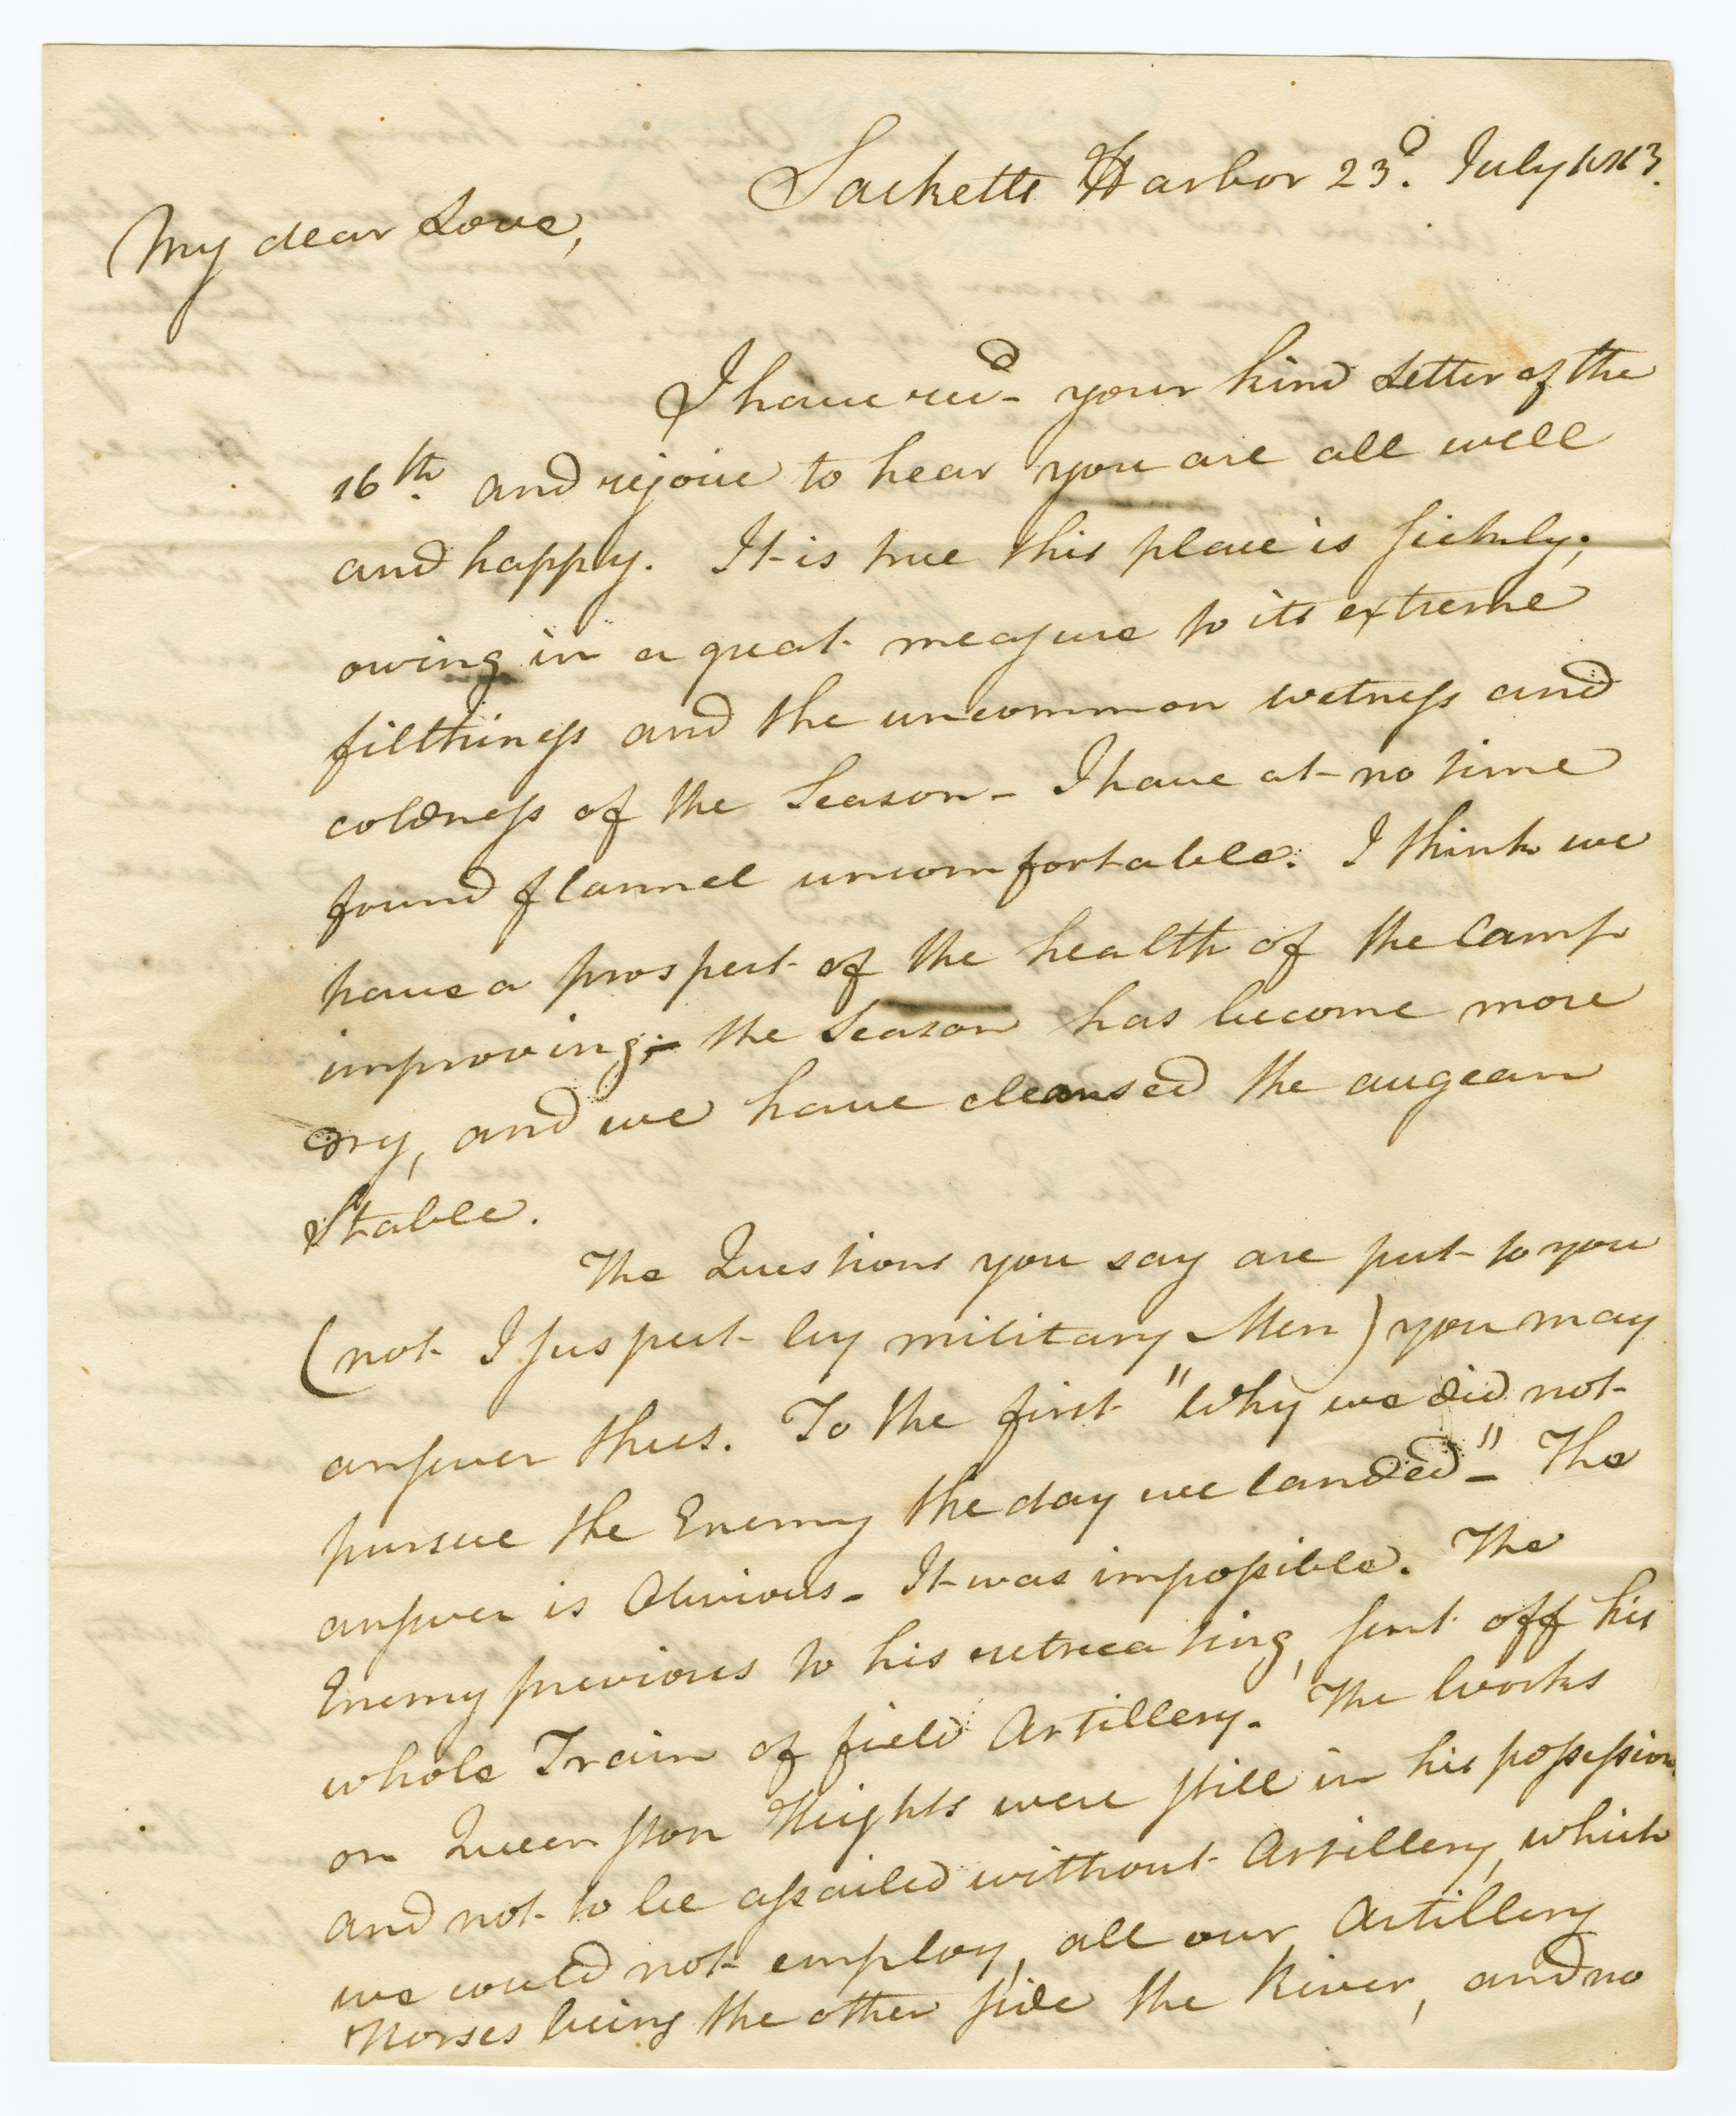 Sacketts Harbor 23d. July 1813.
My dear Love,
I have recd- your kind Letter of the
16th. and rejoice to hear you are all well
and happy. It is true this place is sickly;
owing in a great measure to its extreme
filthiness and the uncommon wetness and
coldness of the Season- I have at no time
found flannel uncomfortable. I think we
have a prospect of the health of the Camp
improving;- the Season has become more
dry, and we have cleansed the augean
Stable.
The Questions you say are put to you
(not I suspect by military Men) you may
answer thus. To the first "Why we did not
pursue the Enemy the day we landed"- The
answer is Obvious- It was impossible. The
Enemy previous to his retreating, sent off his
whole Train of field Artillery. The Works
on Queenston Heights were still in his possession,
and not to be assailed without Artillery, which
we could not employ, all our Artillery
Horses being the other side the River, and no